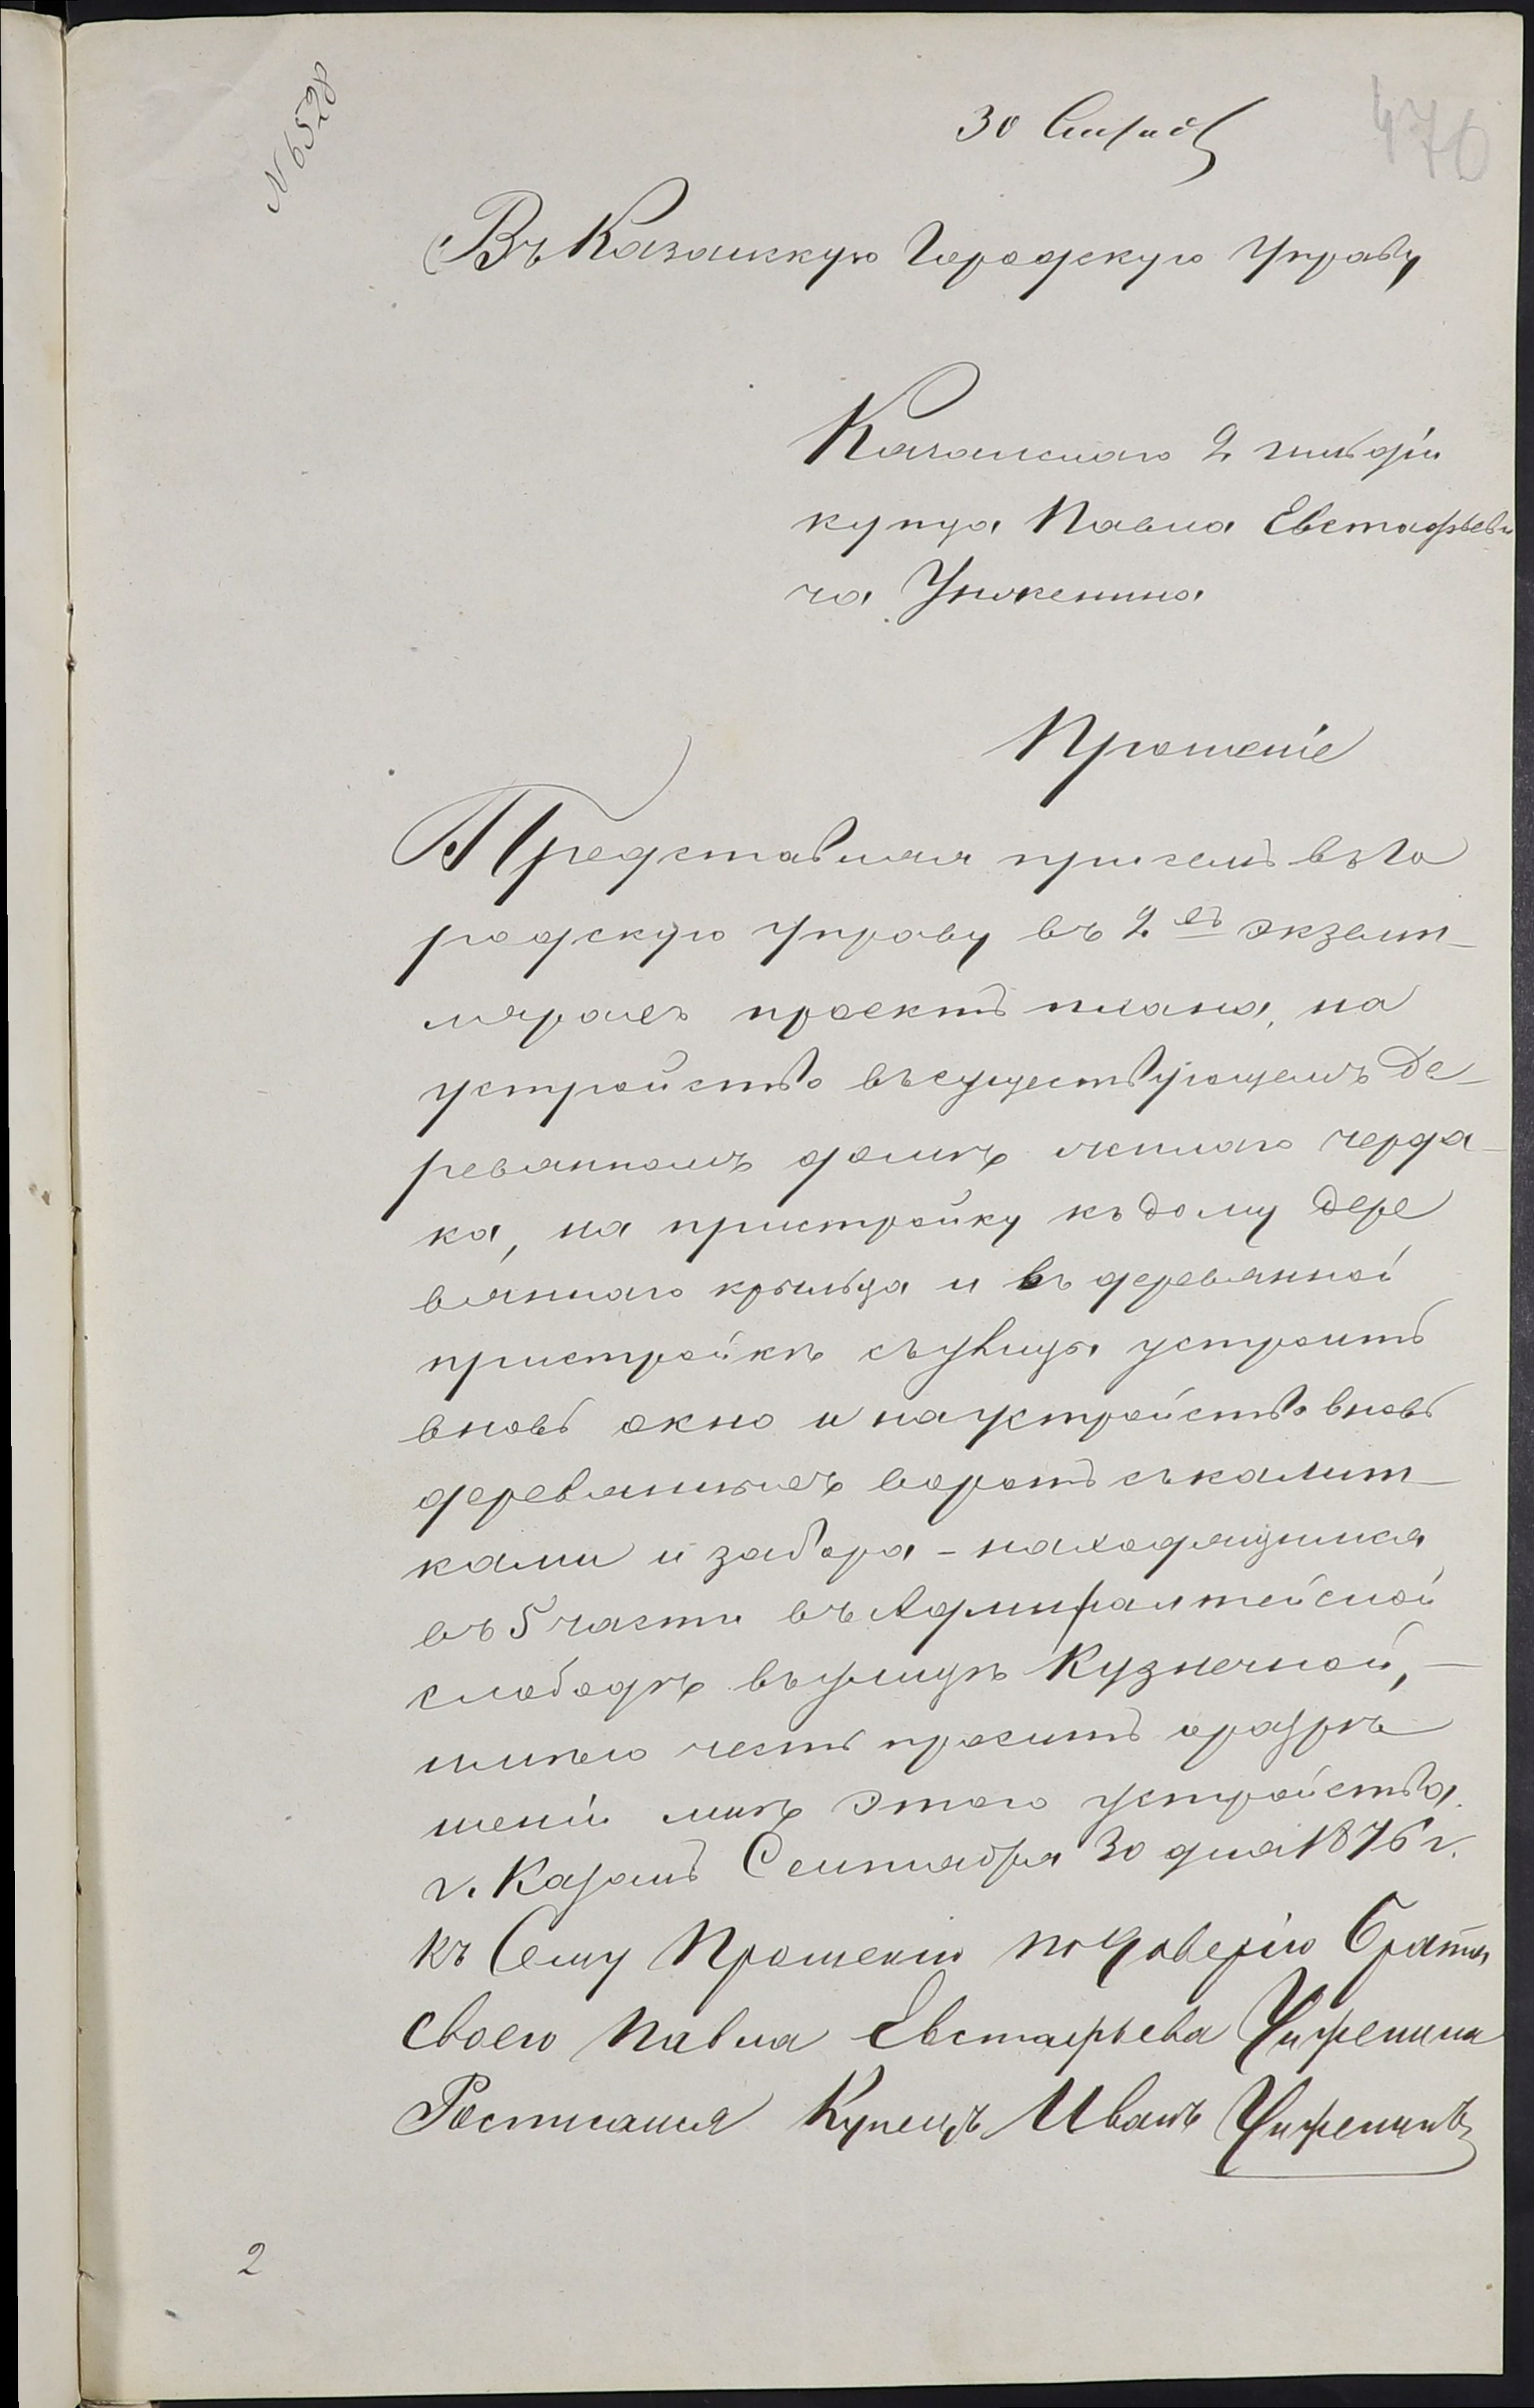 № 6528
30 Сентяб
470
Въ Казанскую Городскую Управу
Казанскаго 2 гильдіи
купца Павла Евстафьеви
ча Унженина
Прошеніе
Представляя при семъ въ Го
родскую Управу въ 2хъ экзем-
плярахъ проектъ плана, на
устройство въ существующемъ де-
ревянномъ домѣ теплаго черда-
ка, на пристройку къ дому дере
вяннаго крыльца и въ деревянной
пристройкѣ съ улицы устроить
вновь окно и на устройство вновь
деревянныхъ воротъ съ калит-
ками и забора - находящимся
въ 5 части въ Адмиралтейской
слободѣ въ улицѣ Кузнечной, -
имѣю честь просить о разрѣ
шеніи мнѣ этого устройства.
г. Казань Сентября 30 дня 1876 г.
къ Сему Прошенію по доверію Брата
своего Павла Евстафьева Унженина
Росписался Купецъ Иванъ Унженинъ
2